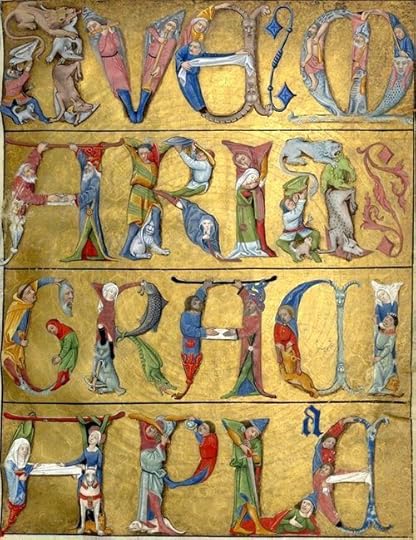 AVE M
ARIA
GRACI
A PLEᵃ